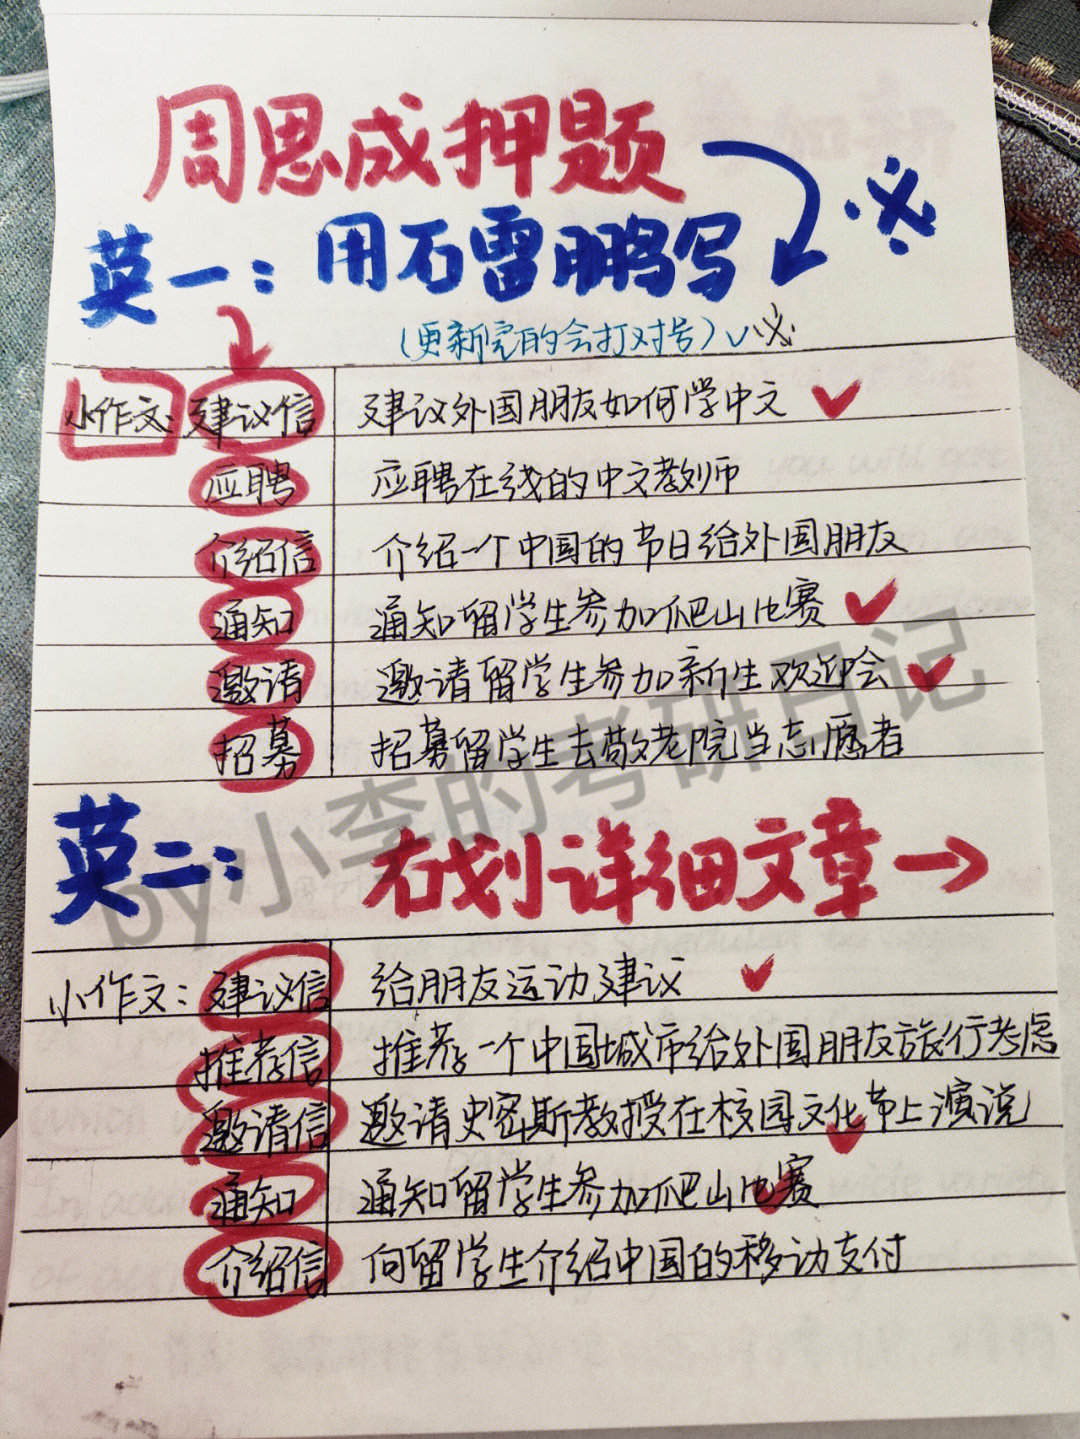 周思成押题
英一：用石雷鹏写
（更新完的会打对号）✓
小作文：建议信 建议外国朋友如何学中文 ✓
应聘 应聘在线的中文教师
介绍信 介绍一个中国的节日给外国朋友
通知 通知留学生参加爬山比赛 ✓
邀请 邀请留学生参加新生欢迎会 ✓
招募 招募留学生去敬老院当志愿者
英二：右划详细文章→
小作文：建议信 给朋友运动建议 ✓
推荐信 推荐一个中国城市给外国朋友旅行考虑
邀请信 邀请史密斯教授在校园文化节上演说 ✓
通知 通知留学生参加爬山比赛 ✓
介绍信 向留学生介绍中国的移动支付
by小李的考研日记